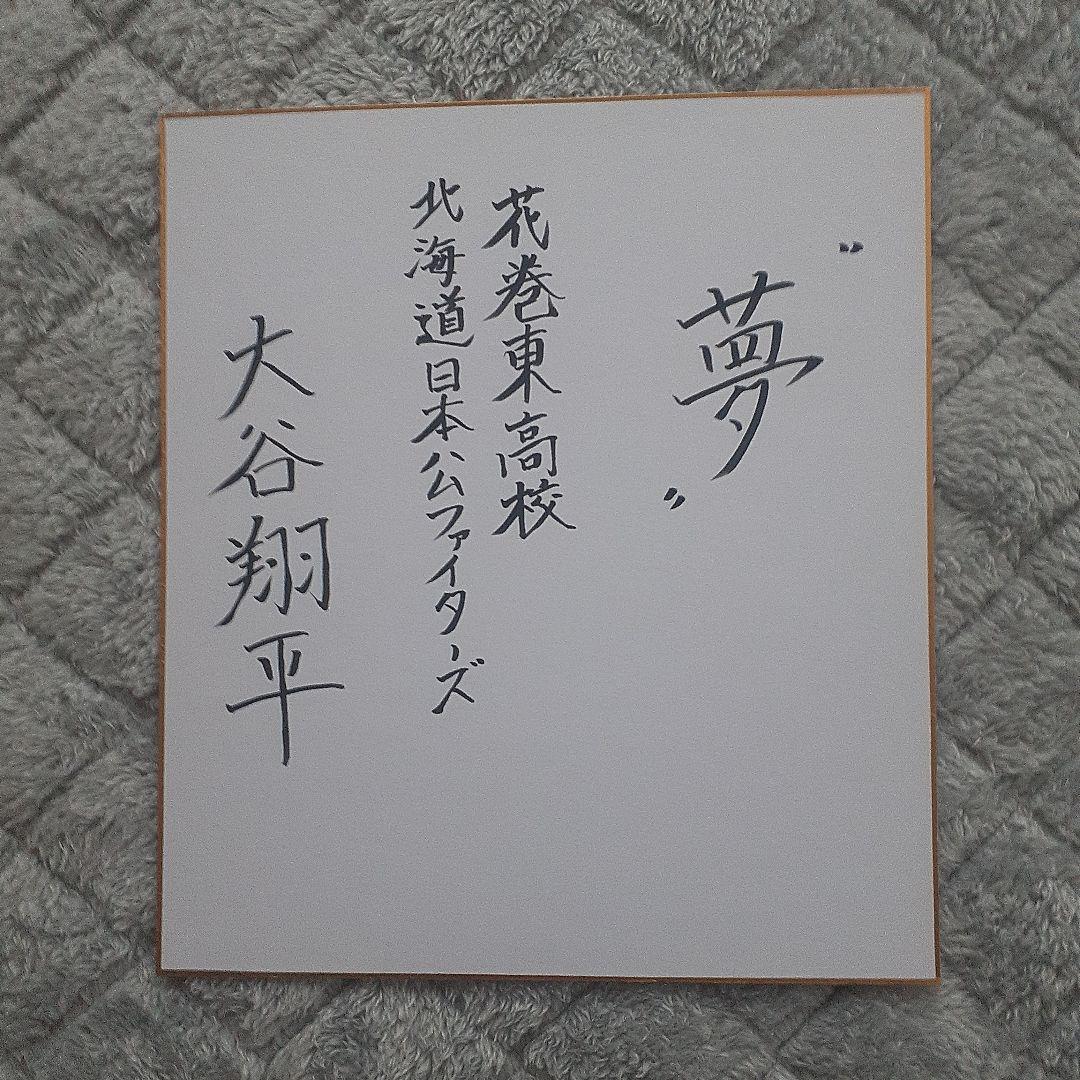 〝夢〟
花巻東高校
北海道日本公ファイターズ
大谷翔平